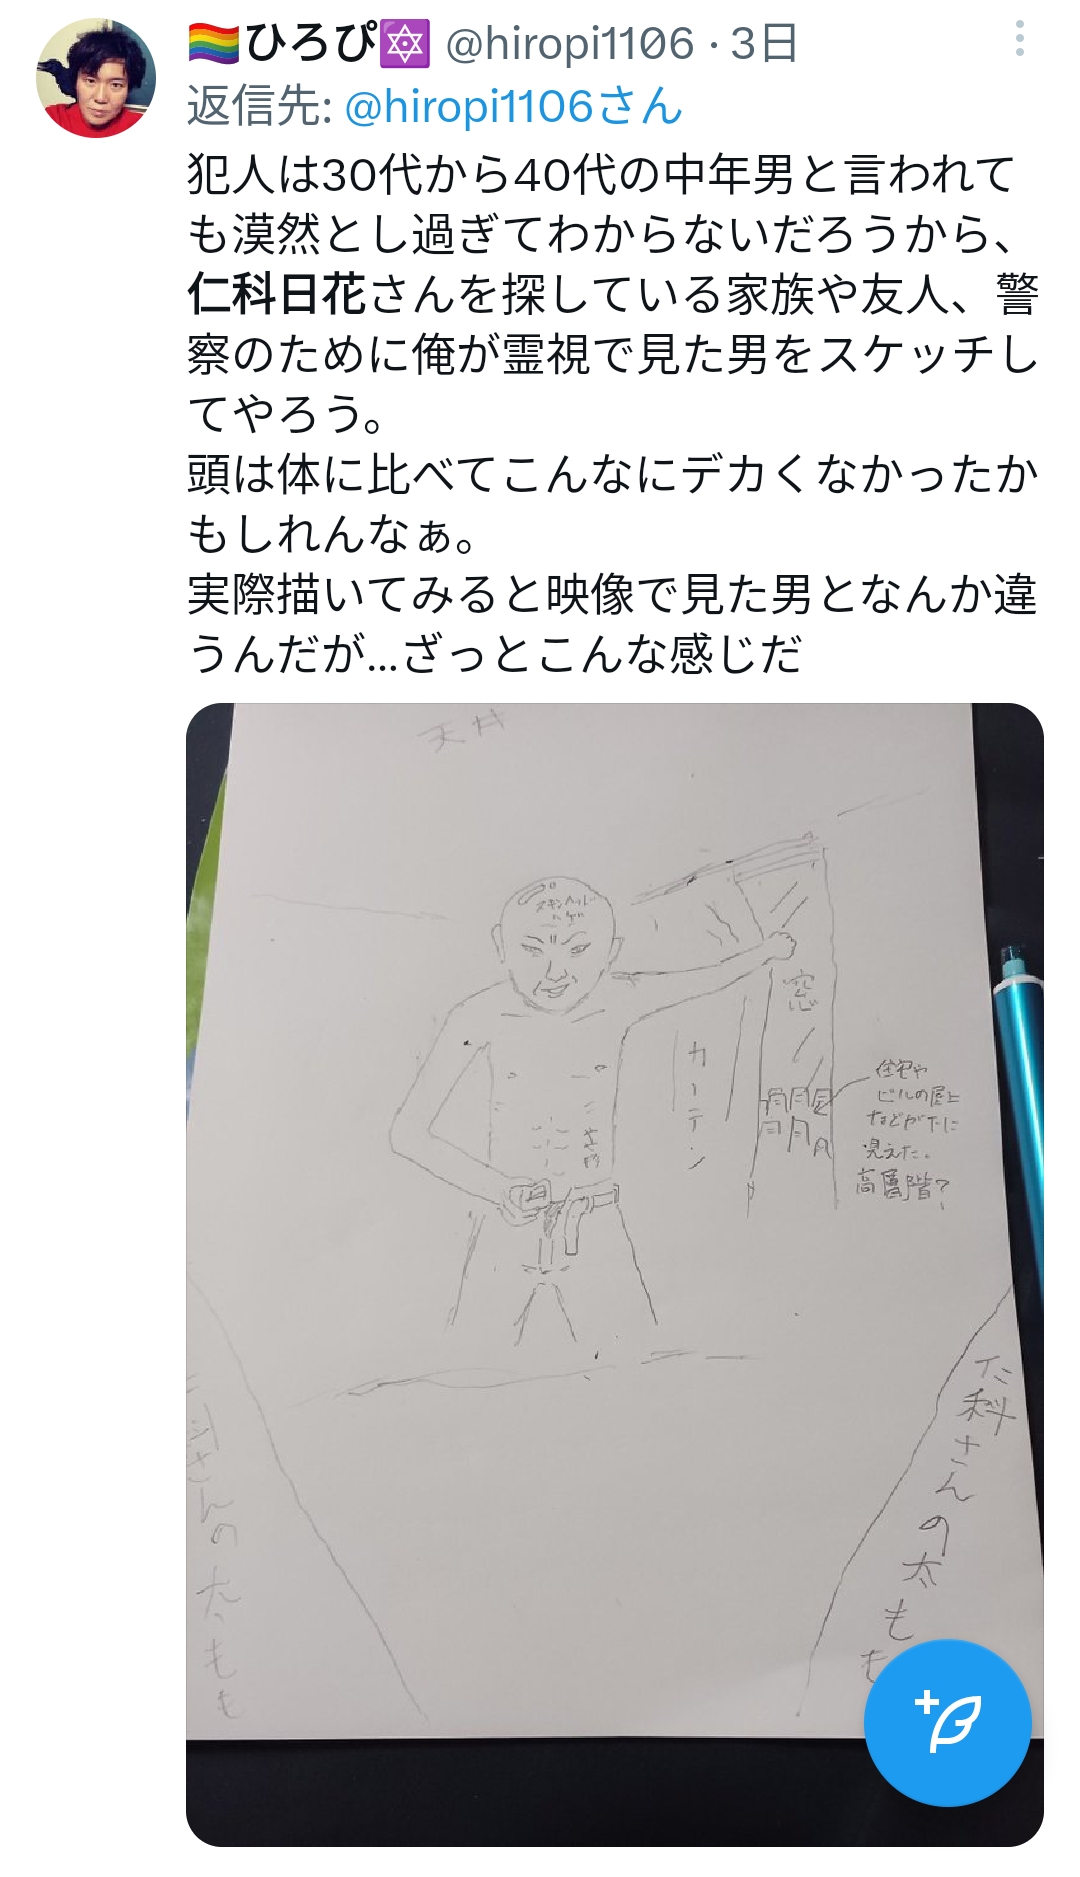 🏳️‍🌈ひろぴ🔯 @hiropi1106 · 3日
返信先: @hiropi1106さん
犯人は30代から40代の中年男と言われて
も漠然とし過ぎてわからないだろうから、
仁科日花さんを探している家族や友人、警
察のために俺が霊視で見た男をスケッチし
てやろう。
頭は体に比べてこんなにデカくなかったか
もしれんなぁ。
実際描いてみると映像で見た男となんか違
うんだが...ざっとこんな感じだ
天井
スキンヘッド
ハゲ
窓
カーテン
住宅や
ビルの屋上
などが下に
見えた。
高層階?
仁科さんの太もも
さんの太もも